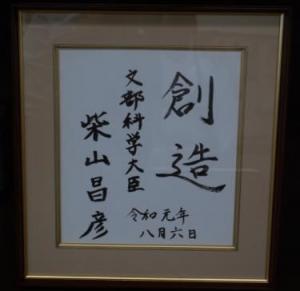 創造
文部科学大臣
柴山昌彦
令和元年
八月六日